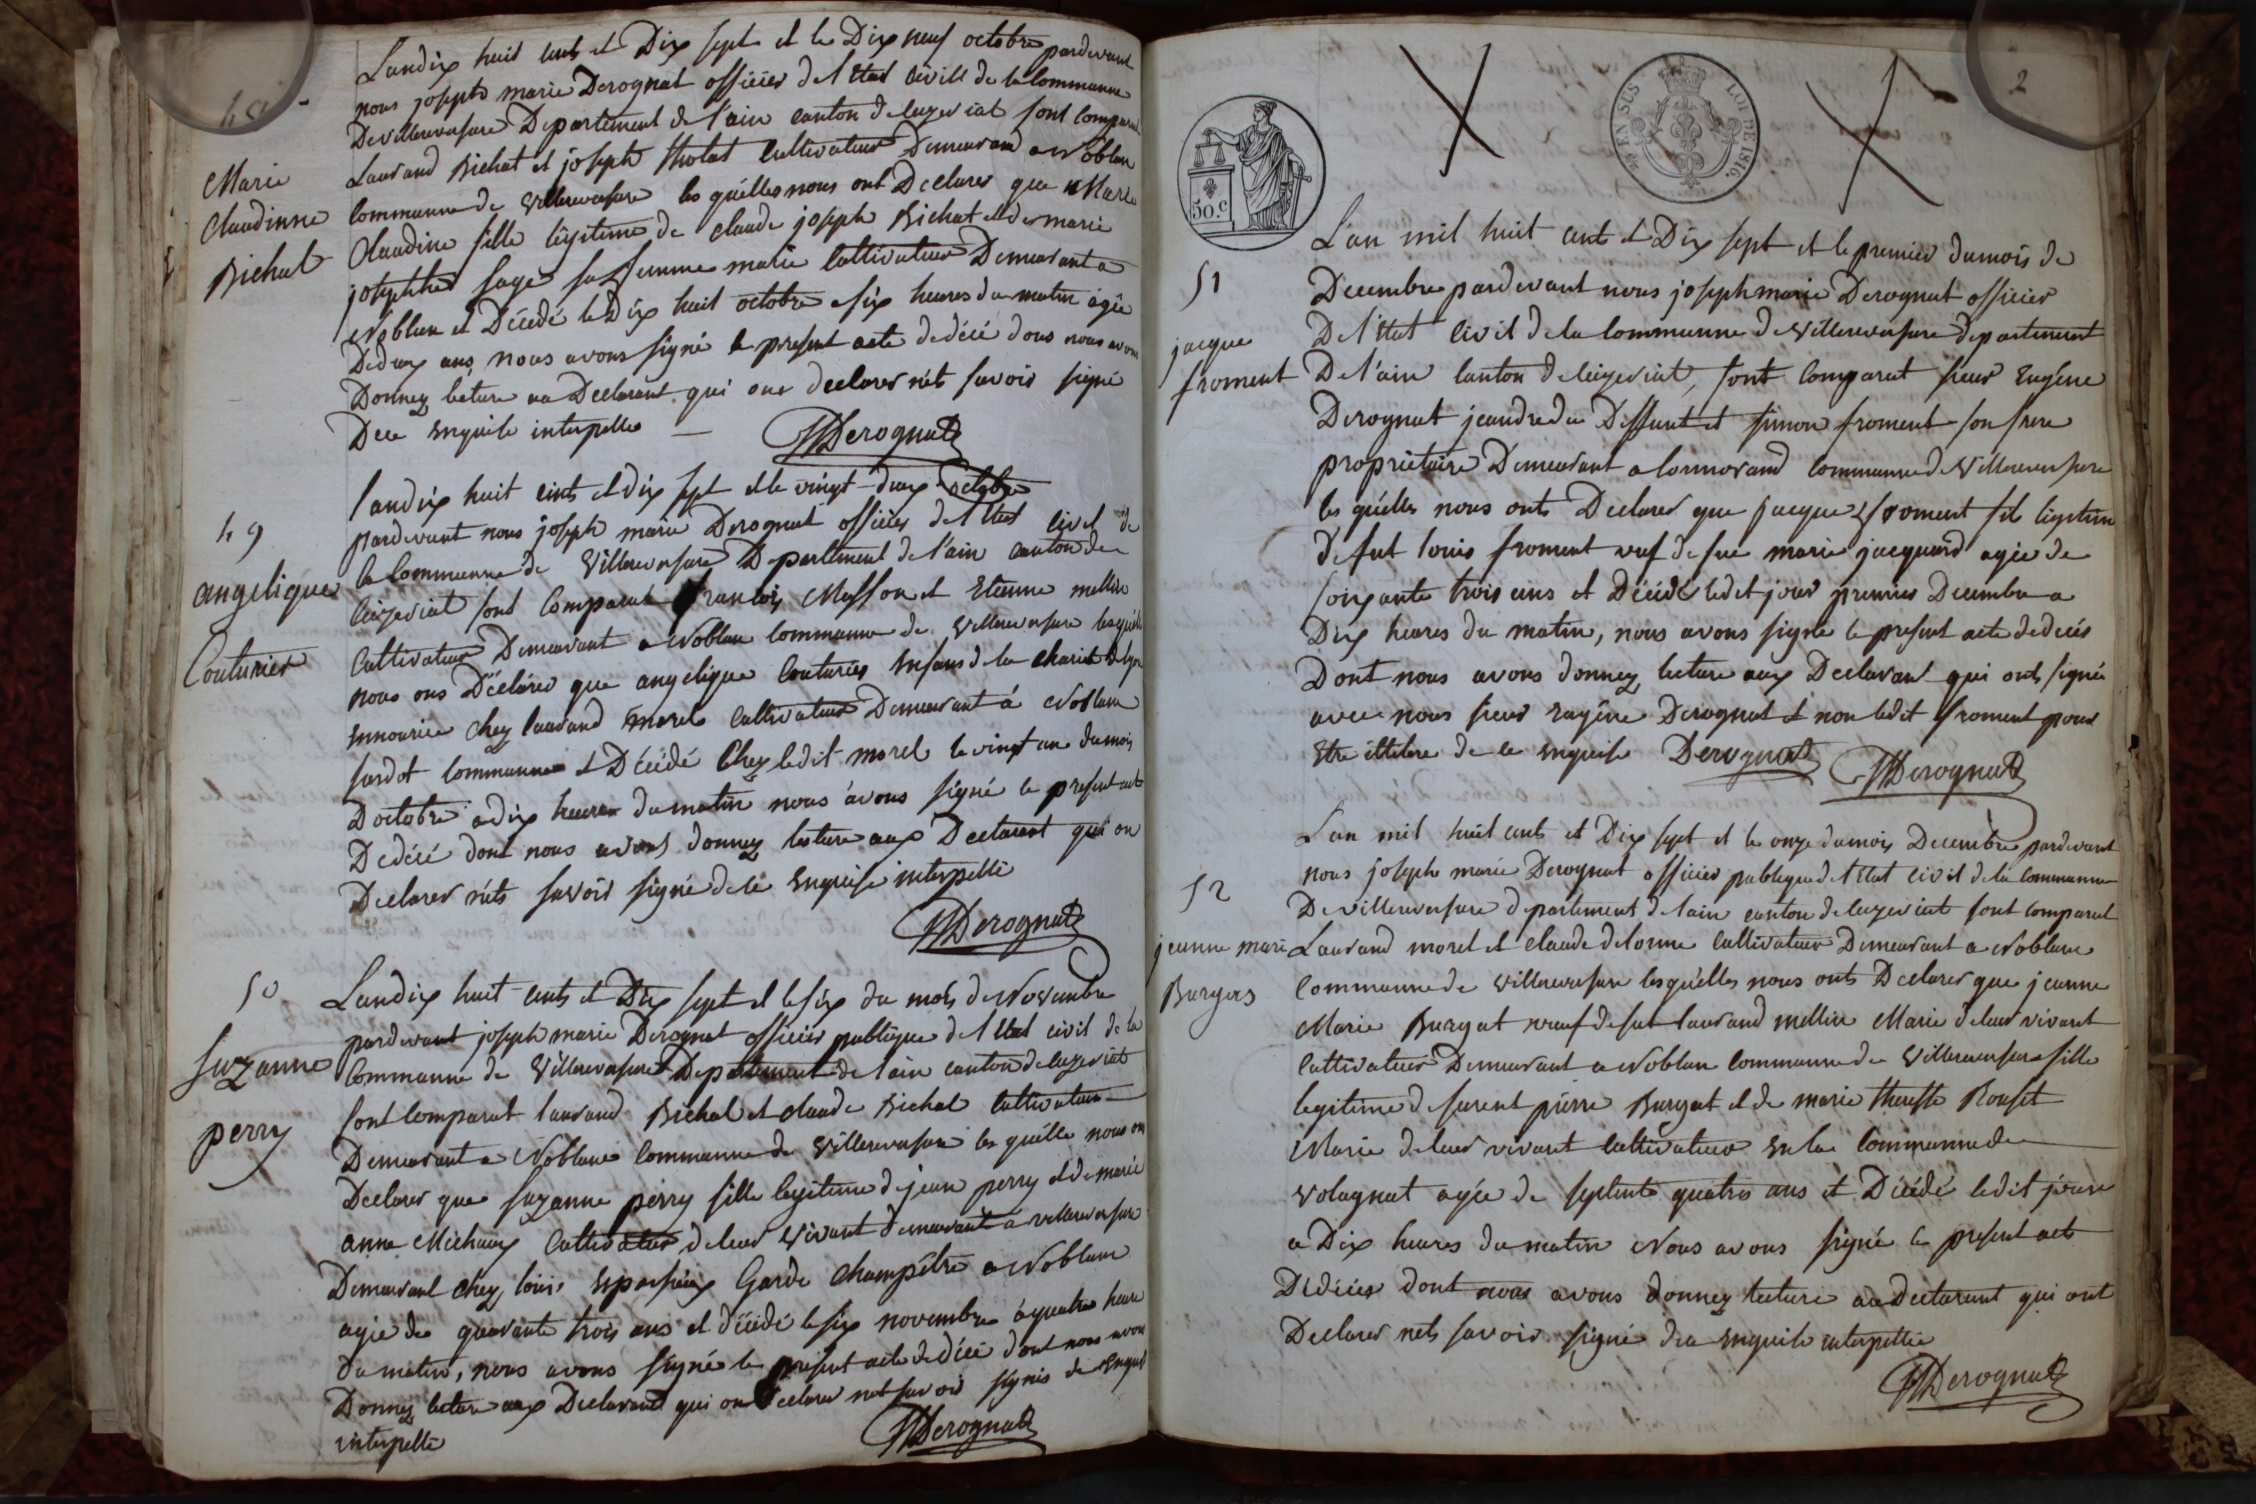 Landix huit cents et Dix sept et le Dix neuf octobre pardevant
nous joseph marie Derognat officier de l'Etat Civill de la Commune
De villereversure Departement de l'ain canton de ceyzeriat sont comparut
Laurand Bichat et joseph tholat Cultivateur Demeurand a Noblan
Commune de villereversure les quélles nous ont Declarer que Marie
Claudine fille légitime de claude joseph Bichat et de marie
josephte sage sa femme marie Cultivateur Demeurant a
Noblan et Décedé le Dix huit octobre a six heures du matin agée
De deux ans, nous avons signé le present acte de décé dons nous avons
Donnez lecture au Declarant qui ont declarer nets savoir signé
De ce enquile interpelle
JMDerognat
Marie
Claudinne
Bichat
49
angelique
Couturier
Landix huit cents et dix sept et le vingt deux octobre
pardevant nous joseph marie Derognat officier de l'Etat civil de
la Commune de Villereversure Departement de l'ain canton de
Ceyzeriat sont Comparut francois Masson et Etienne mellin
Cultivateur Demeurant a Noblan Commune de villereversure lesquélles
nous ons Déclarer que angelique Couturier enfans de la charité de lyon
ennourice chez laurand morel Cultivateur Demeurant à Noblan
susdit Commune et Décédé Chez ledit morel le vingt un du mois
D'octobre a dix heures du matin nous avons signé le present acte
De décé dont nous avons donnez lecture aux Declarant qui on
Declarer nets savoir signé de ce enquise interpellé
JMDerognat
50
suzanne
perry
Landix huit cents et Dix sept et le six du mois de Novembre
pardevant joseph marie Derognat officier publique de l'Etat civil de la
Commune de Villereversure Departement de l'ain canton de ceyzeriat
sont Comparut laurand Bichat et claude Bichat Cultivateur
Demeurant a Noblan Commune de villereversure les quélle nous on
Declarer que suzanne perry fille legitime de jean perry et de marie
anne Michaux Cultivateur de leur vivant demeurant a villereversure
Demeurant chez louis Garde Champêtre a Noblan
agée de quarante trois ans et décédé le six novembre à quatre heure
du matin, nous avons signé le présent acte de décé dont nous avons
Donnez lecture aux Declarant qui on declarer net savoir signés de enquise
interpelle
JMDerognat
2
50.c
EN SUS
LOI DE 1816.
51
jacque
froment
L'an mil huit cents et Dix sept et le premier du mois de
Decembre pardevant nous joseph marie Derognat officier
De l'Etat Civil de la Commune de villereversure departement
De l'ain Canton de Ceyzeriat, sont Comparut sieur Eugéne
Derognat jeandre du Deffunt et simon froment son frere
propriétaire Demeurant a Cormorand Commune de Villereversure
les quélles nous onts Declarer que jacque froment fils ligitime
de fut louis froment veuf de fue marie jacquard agée de
soixante trois ans et Décédé ledit jour premier Decembre a
Dix heures du matin, nous avons signé le present acte de décès
Dont nous avons donnez lecture aux Declarant qui onts signé
avec nous sieur eugéne Derognat et non ledit froment pour
Etre illitere de ce enquise Derognat JMDerognat
52
jeanne marie
Burges
L'an mil huit cents et Dix sept et le onze du mois Decembre pardevant
nous joseph marie Derognat officier publique de l'Etat civil de la Commune
De villereversure departement de l'ain canton de ceyzeriat sont comparut
Laurand morel et claude delorme Cultivateur Demeurant a Noblan
Commune de villereversure lesquélles nous onts Declarer que jeanne
Marie Burgat veuf de fut laurand mellin Marie de leur vivant
Cultivateur Demeurant a Noblan Commune de Villereversure fille
legitime de pierre Burgat et de marie theresse Rouset
Marie de leur vivant Cultivateur en la Commune de
volagnat agée de septente quatre ans et Décédé ledit jour
a Dix heures du matin Nous avons signé le present acte
De décés dont nous avons donnez lecture au Declarant qui ont
Declarer nets savoir signé de ce enquise interpellé
JMDerognat